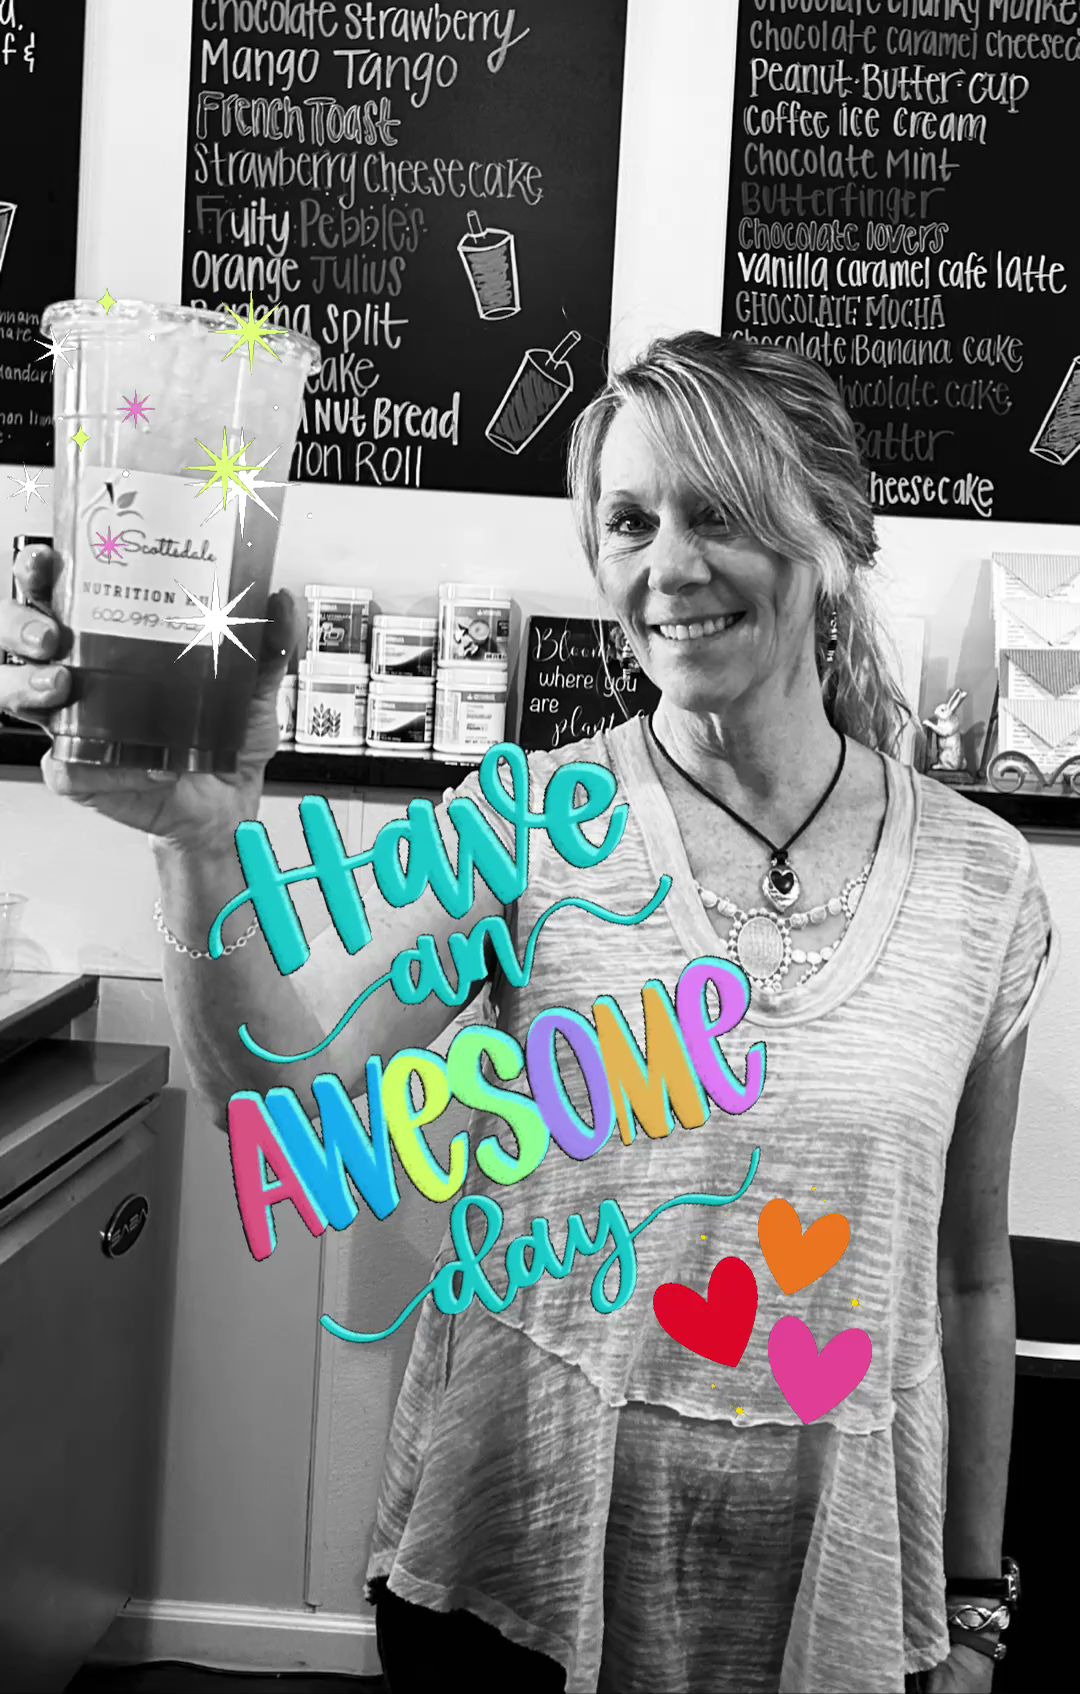 f &
Chocolate Strawberry
Mango Tango
French Toast
Strawberry Cheesecake
Fruity Pebbles
Orange Julius
Split
Cake
Nut Bread
Roll
Chocolate Chunky Monke
Chocolate Caramel Cheesec
Peanut Butter Cup
Coffee Ice Cream
Chocolate Mint
Butterfinger
Chocolate lovers
Vanilla Caramel Café latte
CHOCOLATE MOCHA
Chocolate Banana Cake
hocolate Cake
Batter
heesecake
Scottsdale
NUTRITION
602-919
Bloom
where you
are
plant
Have
an
AWeSOMe
day
SABA